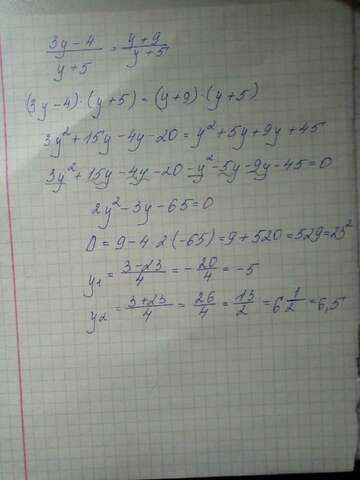 (3y-4)/(y+5) = (y+9)/(y+5)
(3y-4)·(y+5)=(y+9)·(y+5)
3y²+15y-4y-20=y²+5y+9y+45
3y²+15y-4y-20-y²-5y-9y-45=0
2y²-3y-65=0
D=9-4·2(-65)=9+520=529=23²
y₁=(3-23)/4=-20/4=-5
y₂=(3+23)/4=26/4=13/2=6 1/2=6,5